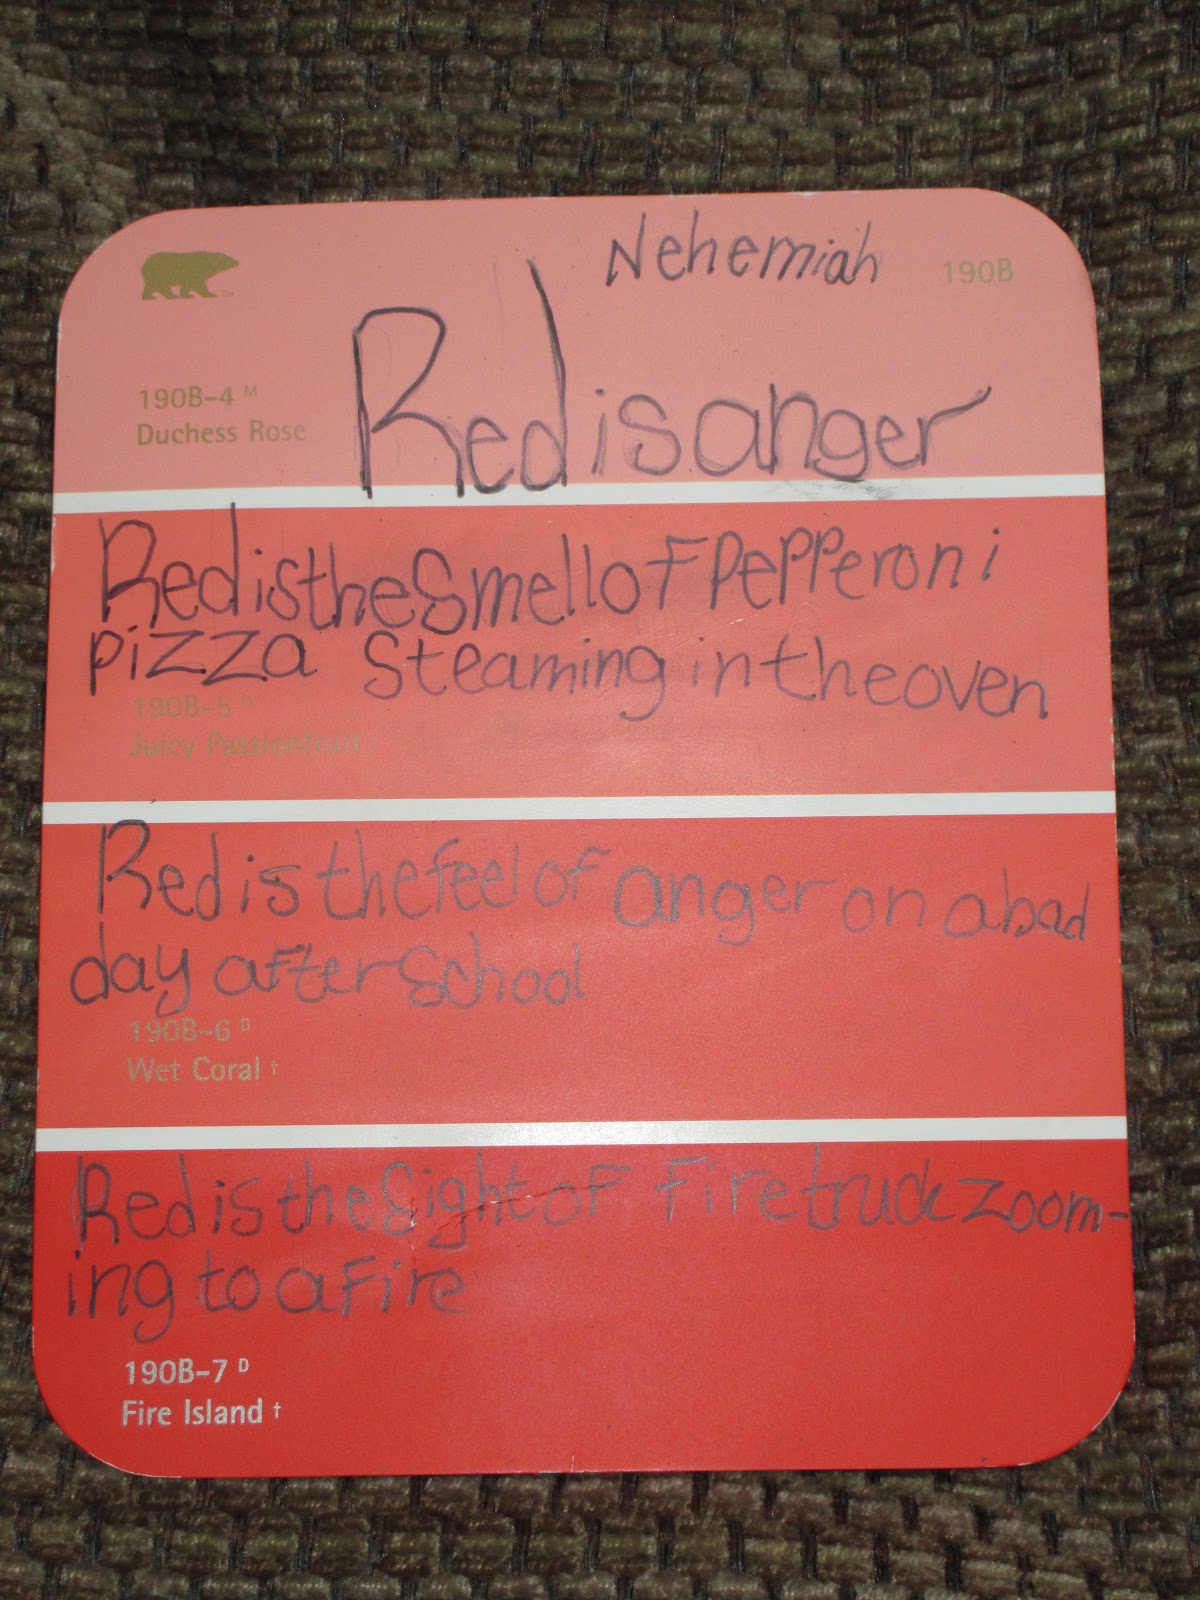 Nehemiah
190B
TM
190B-4 M
Duchess Rose
Red is anger
Red is the smell of pepperoni
pizza steaming in the oven
190B-5 D
Juicy Passionfruit
Red is the feel of anger on a bad
day after school
190B-6 D
Wet Coral †
Red is the sight of firetruck zoom-
ing to a fire
190B-7 D
Fire Island †